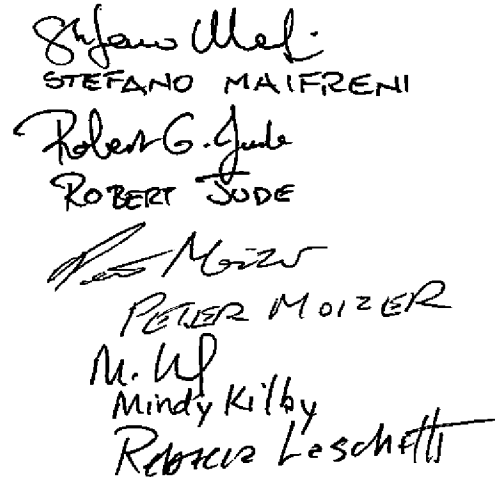 Stefano Maif
STEFANO MAIFRENI
Robert G. Jude
ROBERT JUDE
Peter Moizer
PETER MOIZER
M. Kil
Mindy Kilby
Rebecca Leschetti